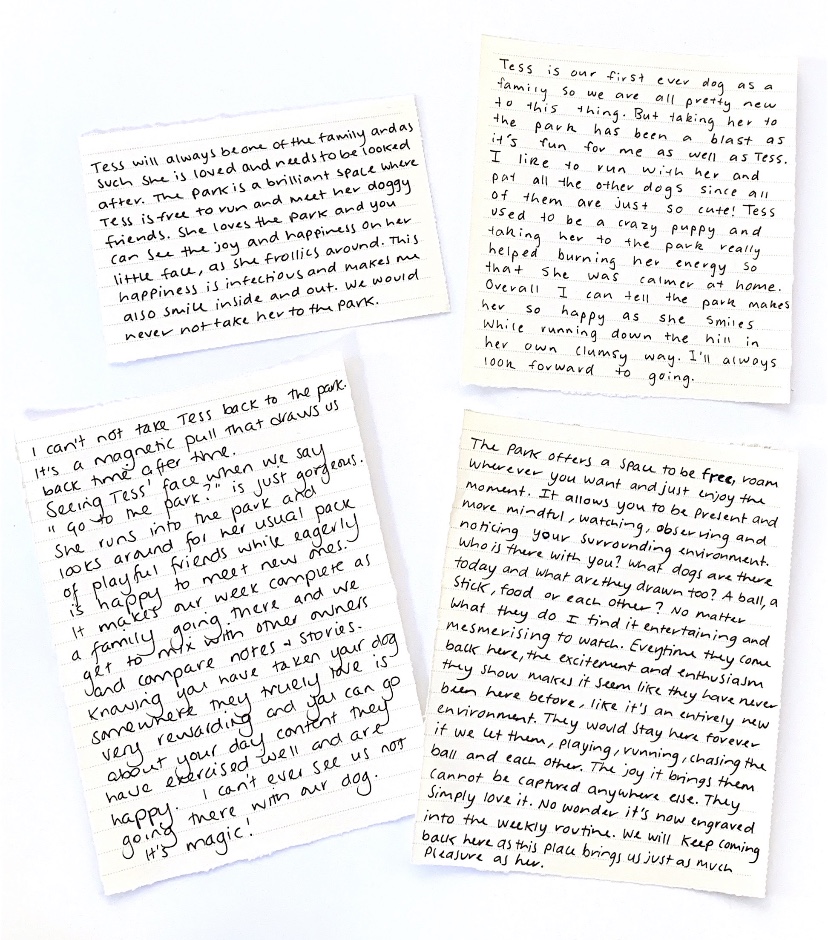 Tess will always be one of the family and as
such she is loved and needs to be looked
after. The park is a brilliant space where
Tess is free to run and meet her doggy
friends. She loves the park and you
can see the joy and happiness on her
little face, as she frollics around. This
happiness is infectious and makes me
also smile inside and out. We would
never not take her to the park.
Tess is our first ever dog as a
family so we are all pretty new
to this thing. But taking her to
the park has been a blast as
it's fun for me as well as Tess.
I like to run with her and
pat all the other dogs since all
of them are just so cute! Tess
used to be a crazy puppy and
taking her to the park really
helped burning her energy so
that she was calmer at home.
Overall I can tell the park makes
her so happy as she smiles
while running down the hill in
her own clumsy way. I'll always
look forward to going.
I can't not take Tess back to the park.
It's a magnetic pull that draws us
back time after time.
Seeing Tess' face when we say
"Go to the park?" is just gorgeous.
She runs into the park and
looks around for her usual pack
of playful friends while eagerly
is happy to meet new ones.
It makes our week complete as
a family going there and we
get to mix with other owners
and compare notes + stories.
Knowing you have taken your dog
somewhere they truely love is
very rewarding and you can go
about your day content they
have exercised well and are
happy. I can't ever see us not
going there with our dog.
It's magic!
The park offers a space to be free, roam
wherever you want and just enjoy the
moment. It allows you to be present and
more mindful, watching, observing and
noticing your surrounding environment.
Who is there with you? What dogs are there
today and what are they drawn too? A ball, a
stick, food or each other? No matter
what they do I find it entertaining and
mesmerising to watch. Everytime they come
back here, the excitement and enthusiasm
they show makes it seem like they have never
been here before, like it's an entirely new
environment. They would stay here forever
if we let them, playing, running, chasing the
ball and each other. The joy it brings them
cannot be captured anywhere else. They
simply love it. No wonder it's now engraved
into the weekly routine. We will keep coming
back here as this place brings us just as much
pleasure as her.